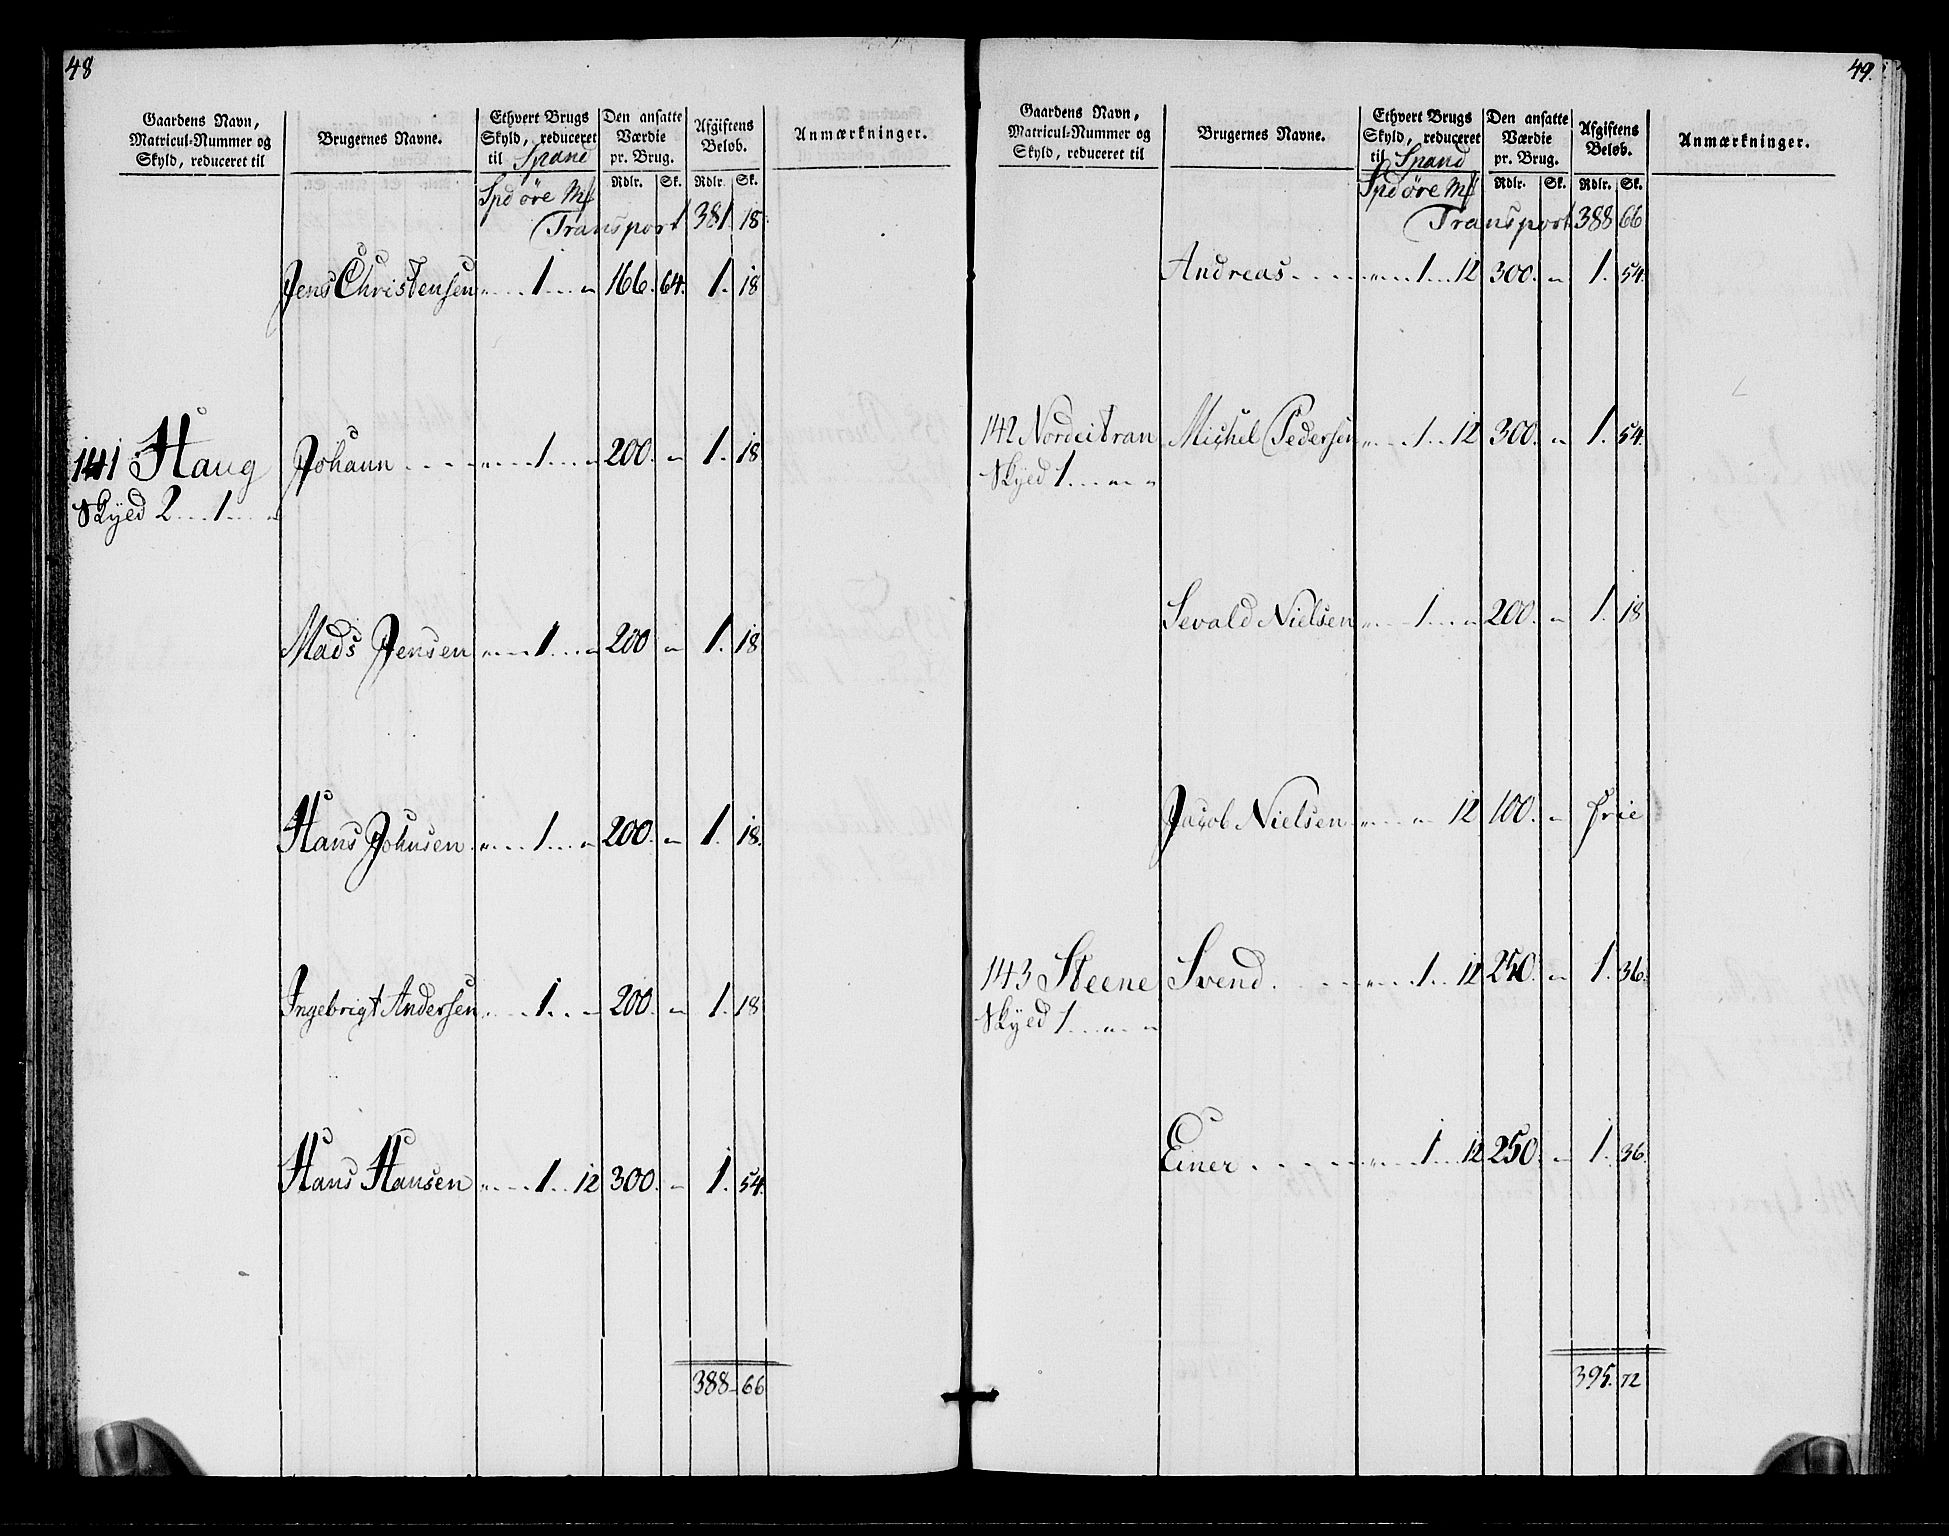 48
Gaardens Navn, Matricul-Nummer og Skyld, reduceret til
Brugernes Navne.
Ethvert Brugs Skyld, reduceret til Spand
Den ansatte Værdie pr. Brug.
Afgiftens Beløb.
Anmærkninger.
Spd øre Mß Rdlr. Sk. Rdlr. Sk.
Transport 381. 18
Jens Christensen " 1 " 166. 64. 1. 18
141 Haug Johann " 1 " 200. " 1. 18
Skyld 2 1 "
Mads Jensen " 1 " 200 " 1. 18
Hans Johnsen " 1 " 200. " 1. 18.
Ingebrigt Andersen " 1 " 200. " 1. 18
Hans Hansen " 1 12 300. " 1. 54.
388 66
49.
Gaardens Navn, Matricul-Nummer og Skyld, reduceret til
Brugernes Navne.
Ethvert Brugs Skyld, reduceret til Spand
Den ansatte Værdie pr. Brug.
Afgiftens Beløb.
Anmærkninger.
Spd øre Mß Rdlr. Sk. Rdlr. Sk.
Transport 388 66
Andreas " 1 12 300. " 1. 54.
142 Nordeitran Michel Pedersen " 1 12 300. " 1. 54.
Skyld 1 " "
Sevald Nielsen " 1 " 200. " 1. 18
Jacob Nielsen " " 12 100. " Frie
143 Steene Svend " 1 12 250. " 1. 36.
Skyld 1 " "
Einer " 1 12 250. " 1. 36.
395. 72